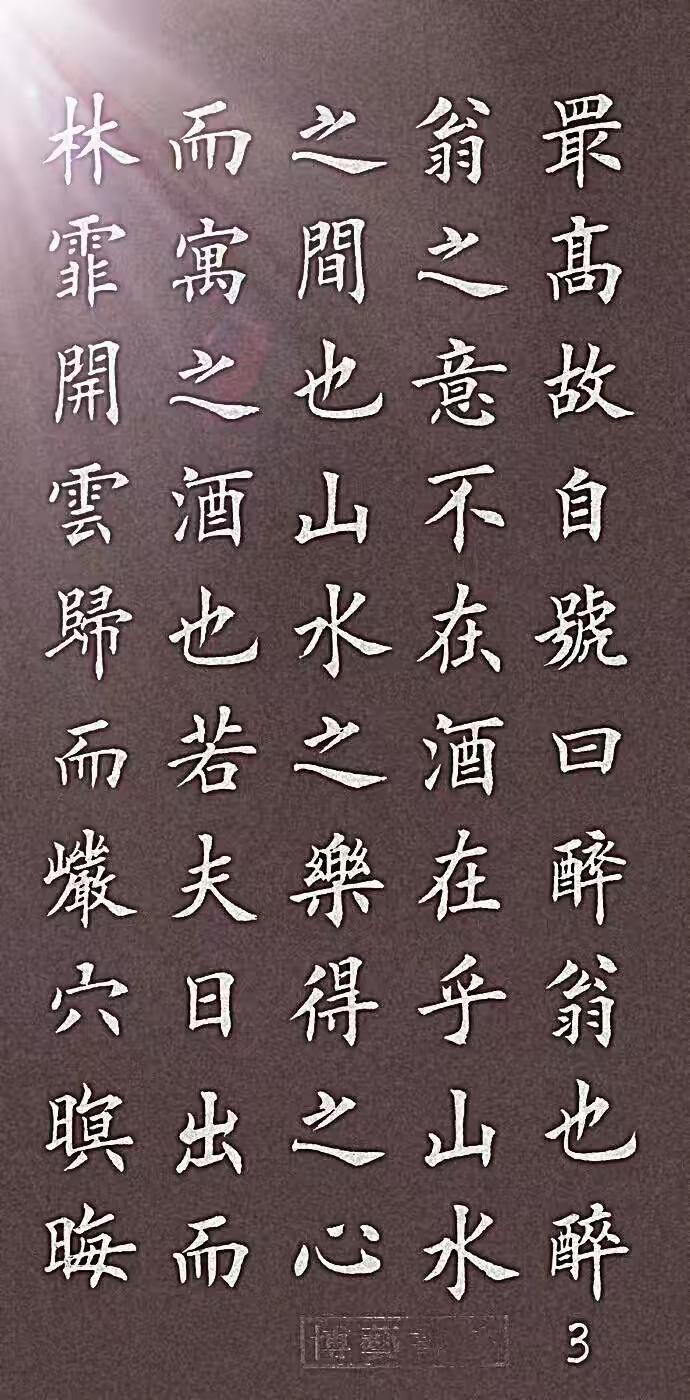 最高故自號曰醉翁也醉
翁之意不在酒在乎山水
之間也山水之樂得之心
而寓之酒也若夫日出而
林霏開雲歸而巖穴暝晦
3